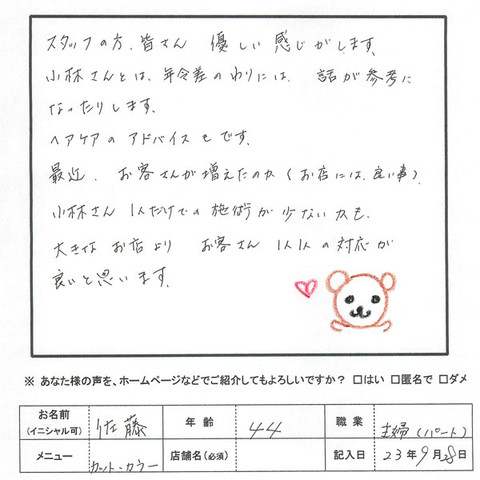 スタッフの方、皆さん 優しい感じがします。
小林さんとは、年令差のわりには、話が参考に
なったりします。
ヘアケアのアドバイスもです。
最近、お客さんが増えたのか(お店には、良い事)、
小林さん1人だけでの施術が少ないかも。
大きなお店より お客さん1人1人の対応が
良いと思います。
※ あなた様の声を、ホームページなどでご紹介してもよろしいですか? □はい □匿名で □ダメ
お名前 (イニシャル可) 佐藤 年齢 44 職業 主婦(パート)
メニュー カット・カラー 店舗名(必須) 記入日 23年9月28日